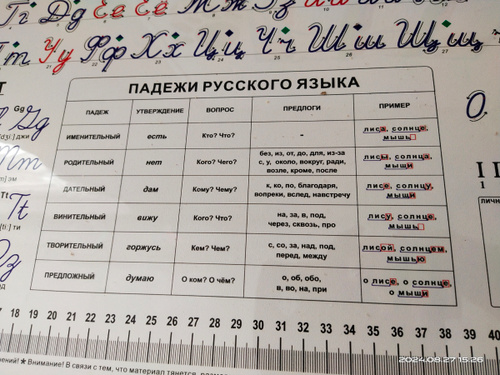 Гг Дд Её Ёё Жж Зз
Тт Уу Фф Хх Цц Чч Шш Щщ
21 22 23 24 25 26 27
ПАДЕЖИ РУССКОГО ЯЗЫКА
ПАДЕЖ УТВЕРЖДЕНИЕ ВОПРОС ПРЕДЛОГИ ПРИМЕР
ИМЕНИТЕЛЬНЫЙ есть Кто? Что? - лиса, солнце,
мышь
РОДИТЕЛЬНЫЙ нет Кого? Чего? без, из, от, до, для, из-за
с, у, около, вокруг, ради,
возле, кроме, после
лисы, солнца,
мыши
ДАТЕЛЬНЫЙ дам Кому? Чему? к, ко, по, благодаря,
вопреки, вслед, навстречу
лисе, солнцу,
мыши
ВИНИТЕЛЬНЫЙ вижу Кого? Что? на, за, в, под,
через, сквозь, про
лису, солнце,
мышь
ТВОРИТЕЛЬНЫЙ горжусь Кем? Чем? с, со, за, над, под,
перед, между
лисой, солнцем,
мышью
ПРЕДЛОЖНЫЙ думаю О ком? О чём? о, об, обо,
в, во, на, при
о лисе, о солнце,
о мыши
Gg
джи
эм
Tt
[ti:] ти
зед
1
18 19 20 21 22 23 24 25 26 27 28 29 30 31 32 33 34 35 36 37 38 39 40
★ Внимание! В связи с тем, что материал тянется,
2024.08.27 15:26